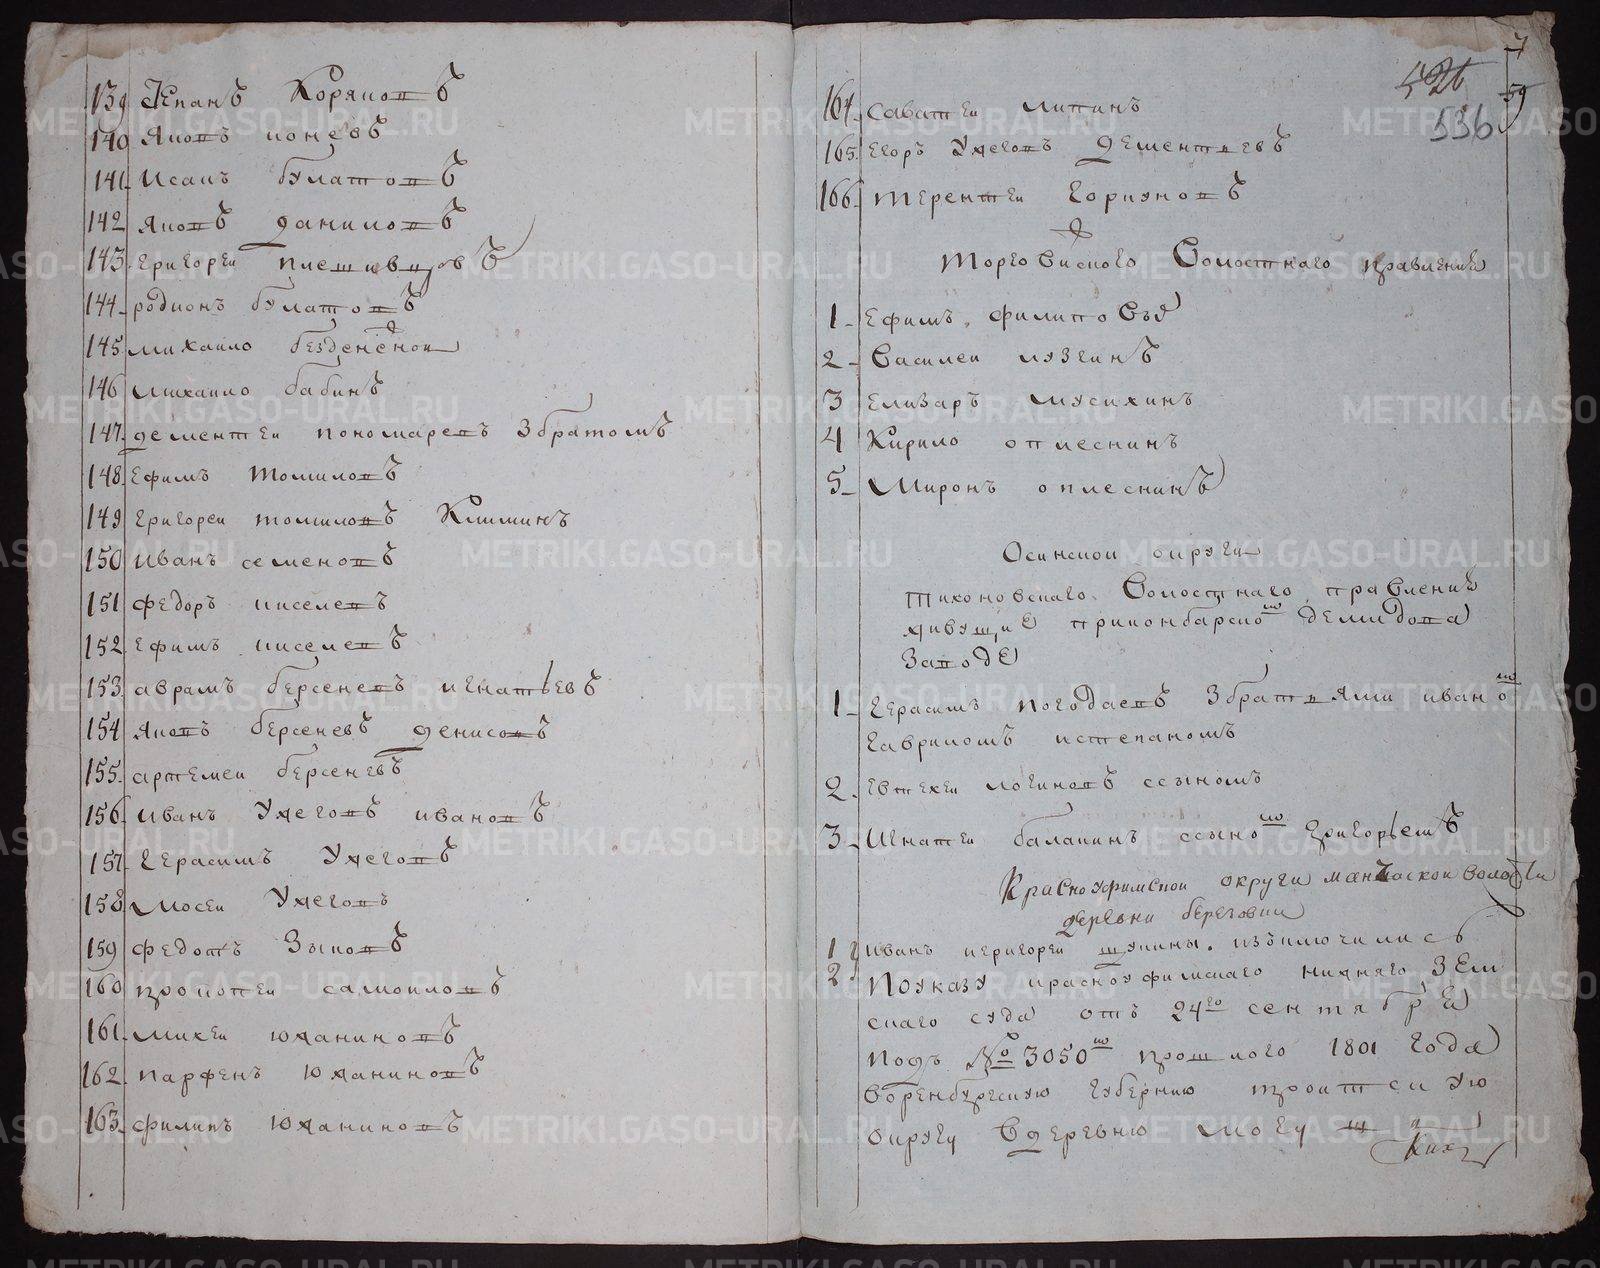 139 Степанъ Коряковъ
140 Яковъ ионевъ
141 Исакъ булатовъ
142 Яковъ даниловъ
143 григореи плешивцовъ
144 родионъ булатовъ
145 михаило безденежнои
146 михаило бабинъ
147 дементеи пономаревъ збратомъ
148 Ефимъ томиловъ
149 григореи томиловъ Климинъ
150 иванъ семеновъ
151 федоръ киселевъ
152 Ефимъ киселевъ
153 аврамъ берсеневъ игнатьевъ
154 Яковъ берсеневъ денисовъ
155 артемеи берсеневъ
156 иванъ Ужеговъ ивановъ
157 герасимъ Ужеговъ
158 Мосеи Ужеговъ
159 Федотъ Зыковъ
160 прокопеи самоиловъ
161 михеи южаниновъ
162 парфенъ южаниновъ
163 филипъ южаниновъ
536
59
164 саватеи липинъ
165 Егоръ Ужеговъ дементьевъ
166 терентеи горшуновъ
торговискаго Волостнаго правления
1 Ефимъ филипо
2 Василеи лузгинъ
3 Елизаръ мусихинъ
4 Кирило оплеснинъ
5 Миронъ оплеснинъ
Осинскои округи
тихоновскаго Волостнаго правления
живущие прикамбарско демидова
Заводе
1 герасимъ погодаевъ збратьями ивано
гавриломъ истепаномъ
2 Евтехеи логиновъ ссыномъ
3 Игнатеи балакинъ ссыно григорьемъ
Красноуфимскои округи манчаскои волости
деревни береговки
1 иванъ
2 игригореи шукины. изъключились
Поуказу красноуфимскаго нижняго Зем
скаго суда отъ 24го сентября
подъ № 3050 прошлого 1801 года
воренбургскую губернию троитскую
округу вдеревню